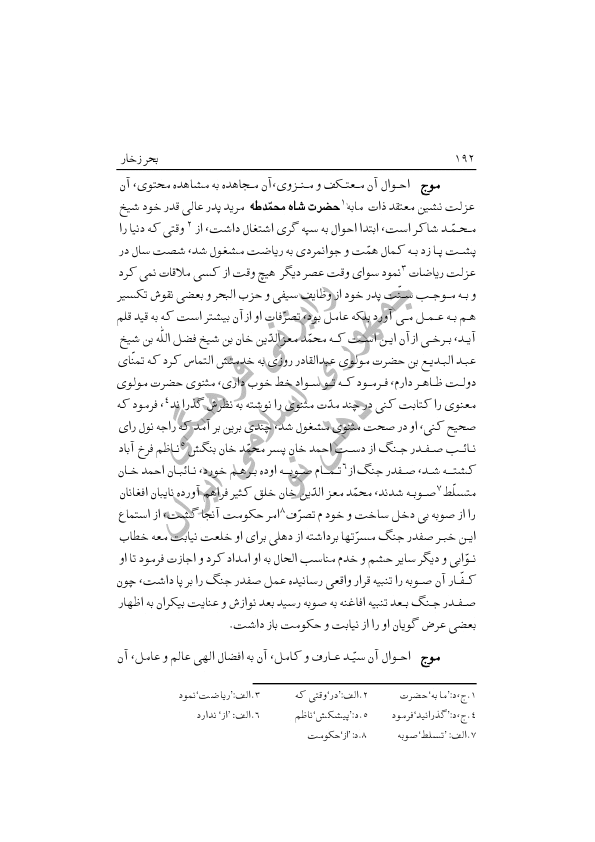 ۱۹۲
بحر زخار
موج احوال آن معتکف و منزوی، آن مجاهده به مشاهده محتوی، آن
عزلت نشین معتقد ذات مابه۱ حضرت شاه محمّدطه مرید پدر عالی قدر خود شیخ
محمّد شاکر است، ابتدا احوال به سپه گری اشتغال داشت، از۲ وقتی که دنیا را
پشت پا زد به کمال همّت و جوانمردی به ریاضت مشغول شد، شصت سال در
عزلت ریاضات۳ نمود سوای وقت عصر دیگر هیچ وقت از کسی ملاقات نمی کرد
و به موجب سنّت پدر خود از وظایف سیفی و حزب البحر و بعضی نقوش تکسیر
هم به عمل می آورد بلکه عامل بود، تصرّفات او از آن بیشتر است که به قید قلم
آید، برخی از آن این است که محمّد معزالدّین خان بن شیخ فضل الله بن شیخ
عبد البدیع بن حضرت مولوی عبدالقادر روزی به خدمتش التماس کرد که تمنّای
دولت ظاهر دارم، فرمود که تو سواد خط خوب داری، مثنوی حضرت مولوی
معنوی را کتابت کنی در چند مدّت مثنوی را نوشته به نظرش گذراند۴، فرمود که
صحیح کنی، او در صحت مثنوی مشغول شد، چندی برین بر آمد که راجه نول رای
نائب صفدر جنگ از دست احمد خان پسر محمّد خان بنگش۵ ناظم فرخ آباد
کشته شد، صفدر جنگ از۶ تمام صوبه اوده برهم خورد، نائبان احمد خان
متسلّط۷ صوبه شدند، محمّد معز الدّین خان خلق کثیر فراهم آورده نایبان افغانان
را از صوبه بی دخل ساخت و خود م تصرّف۸ امر حکومت آنجا گشت، از استماع
این خبر صفدر جنگ مسرّتها برداشته از دهلی برای او خلعت نیابت معه خطاب
نوّابی و دیگر سایر حشم و خدم مناسب الحال به او امداد کرد و اجازت فرمود تا او
کفّار آن صوبه را تنبیه قرار واقعی رسانیده عمل صفدر جنگ را بر پا داشت، چون
صفدر جنگ بعد تنبیه افاغنه به صوبه رسید بعد نوازش و عنایت بیکران به اظهار
بعضی عرض گویان او را از نیابت و حکومت باز داشت.
موج احوال آن سیّد عارف و کامل، آن به افضال الهی عالم و عامل، آن
۱.ج،د:'ما به' حضرت ۲.الف:'در' وقتی که ۳.الف:'ریاضت' نمود
۴.ج،د:'گذرانید' فرمود ۵.د:'پیشکش' ناظم ۶.الف: 'از' ندارد
۷.الف: 'تسلط' صوبه ۸.د:'از' حکومت